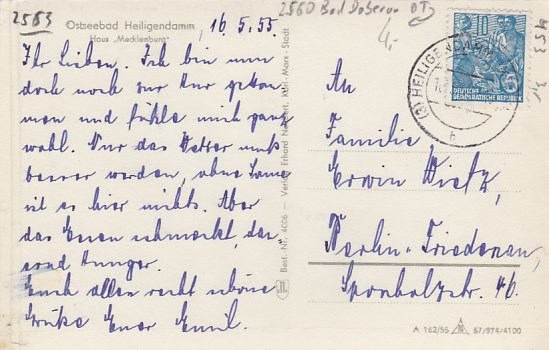 2583
2560 Bad Doberan OT
4,-
Ostseebad Heiligendamm
Haus „Mecklenburg"
16.5.55.
Ihr Lieben. Ich bin nun
doch noch zur Kur gekom-
men und fühle mich ganz
wohl. Nur das Wetter muß
besser werden, ohne Sonne
ist es hier nichts. Aber
das Essen schmeckt,
Hunger.
Euch allen recht schöne
Grüße Euer Emil.
Best.-Nr. 4006 – Verlag Erhard Neubert, Karl-Marx-Stadt
HEILIGENDAMM
b
10
DEUTSCHE
DEMOKRATISCHE REPUBLIK
An
Familie
Erwin Wietz,
Berlin-Friedenau,
Sponholzstr. 46.
A 162/55 57/974/4100